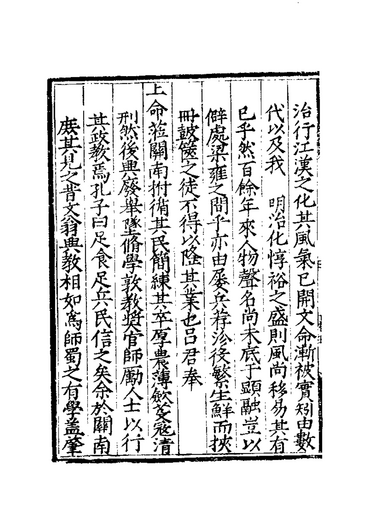 治行江漢之化其風氣已開文命漸被實矧由數
代以及我　明治化惇裕之盛則風尚移易其有
已乎然百餘年來人物聲名尚未底于顯融豈以
僻處梁雍之間乎亦由屡兵荐沴後繁生鮮而挾
冊鼓篋之徒不得以隆其業也呂君奉
上命蒞關南拊循其民簡練其卒厚農薄歛奸寇清
刑然後興廢舉墜脩學敦教奨官師勵人士以行
其政教焉孔子曰足食足兵民信之矣余於關南
庶其見之昔文翁典教相如為師蜀之有學盖肇